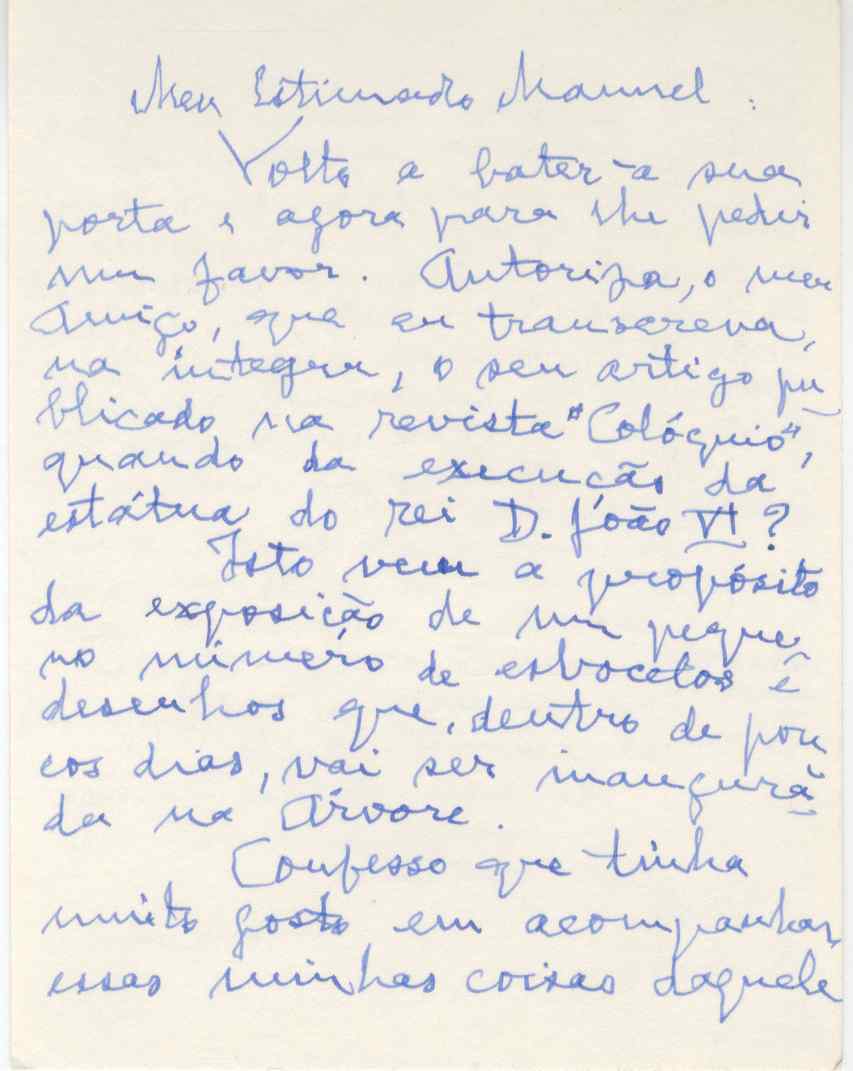 Meu Estimado Manuel:
Volto a bater-a sua
porta e agora para lhe pedir
um favor. Autoriza, o meu
Amigo, que eu transcreva,
na íntegra, o seu artigo pu
blicado na revista "Colóquio",
quando da execução da
estátua do rei D. João VI?
Isto vem a propósito
da exposição de um peque
no número de esbocetos e
desenhos que, dentro de pou
cos dias, vai ser inaugura
da na Árvore.
Confesso que tinha
muito gosto em acompanhar
essas minhas coisas daquele